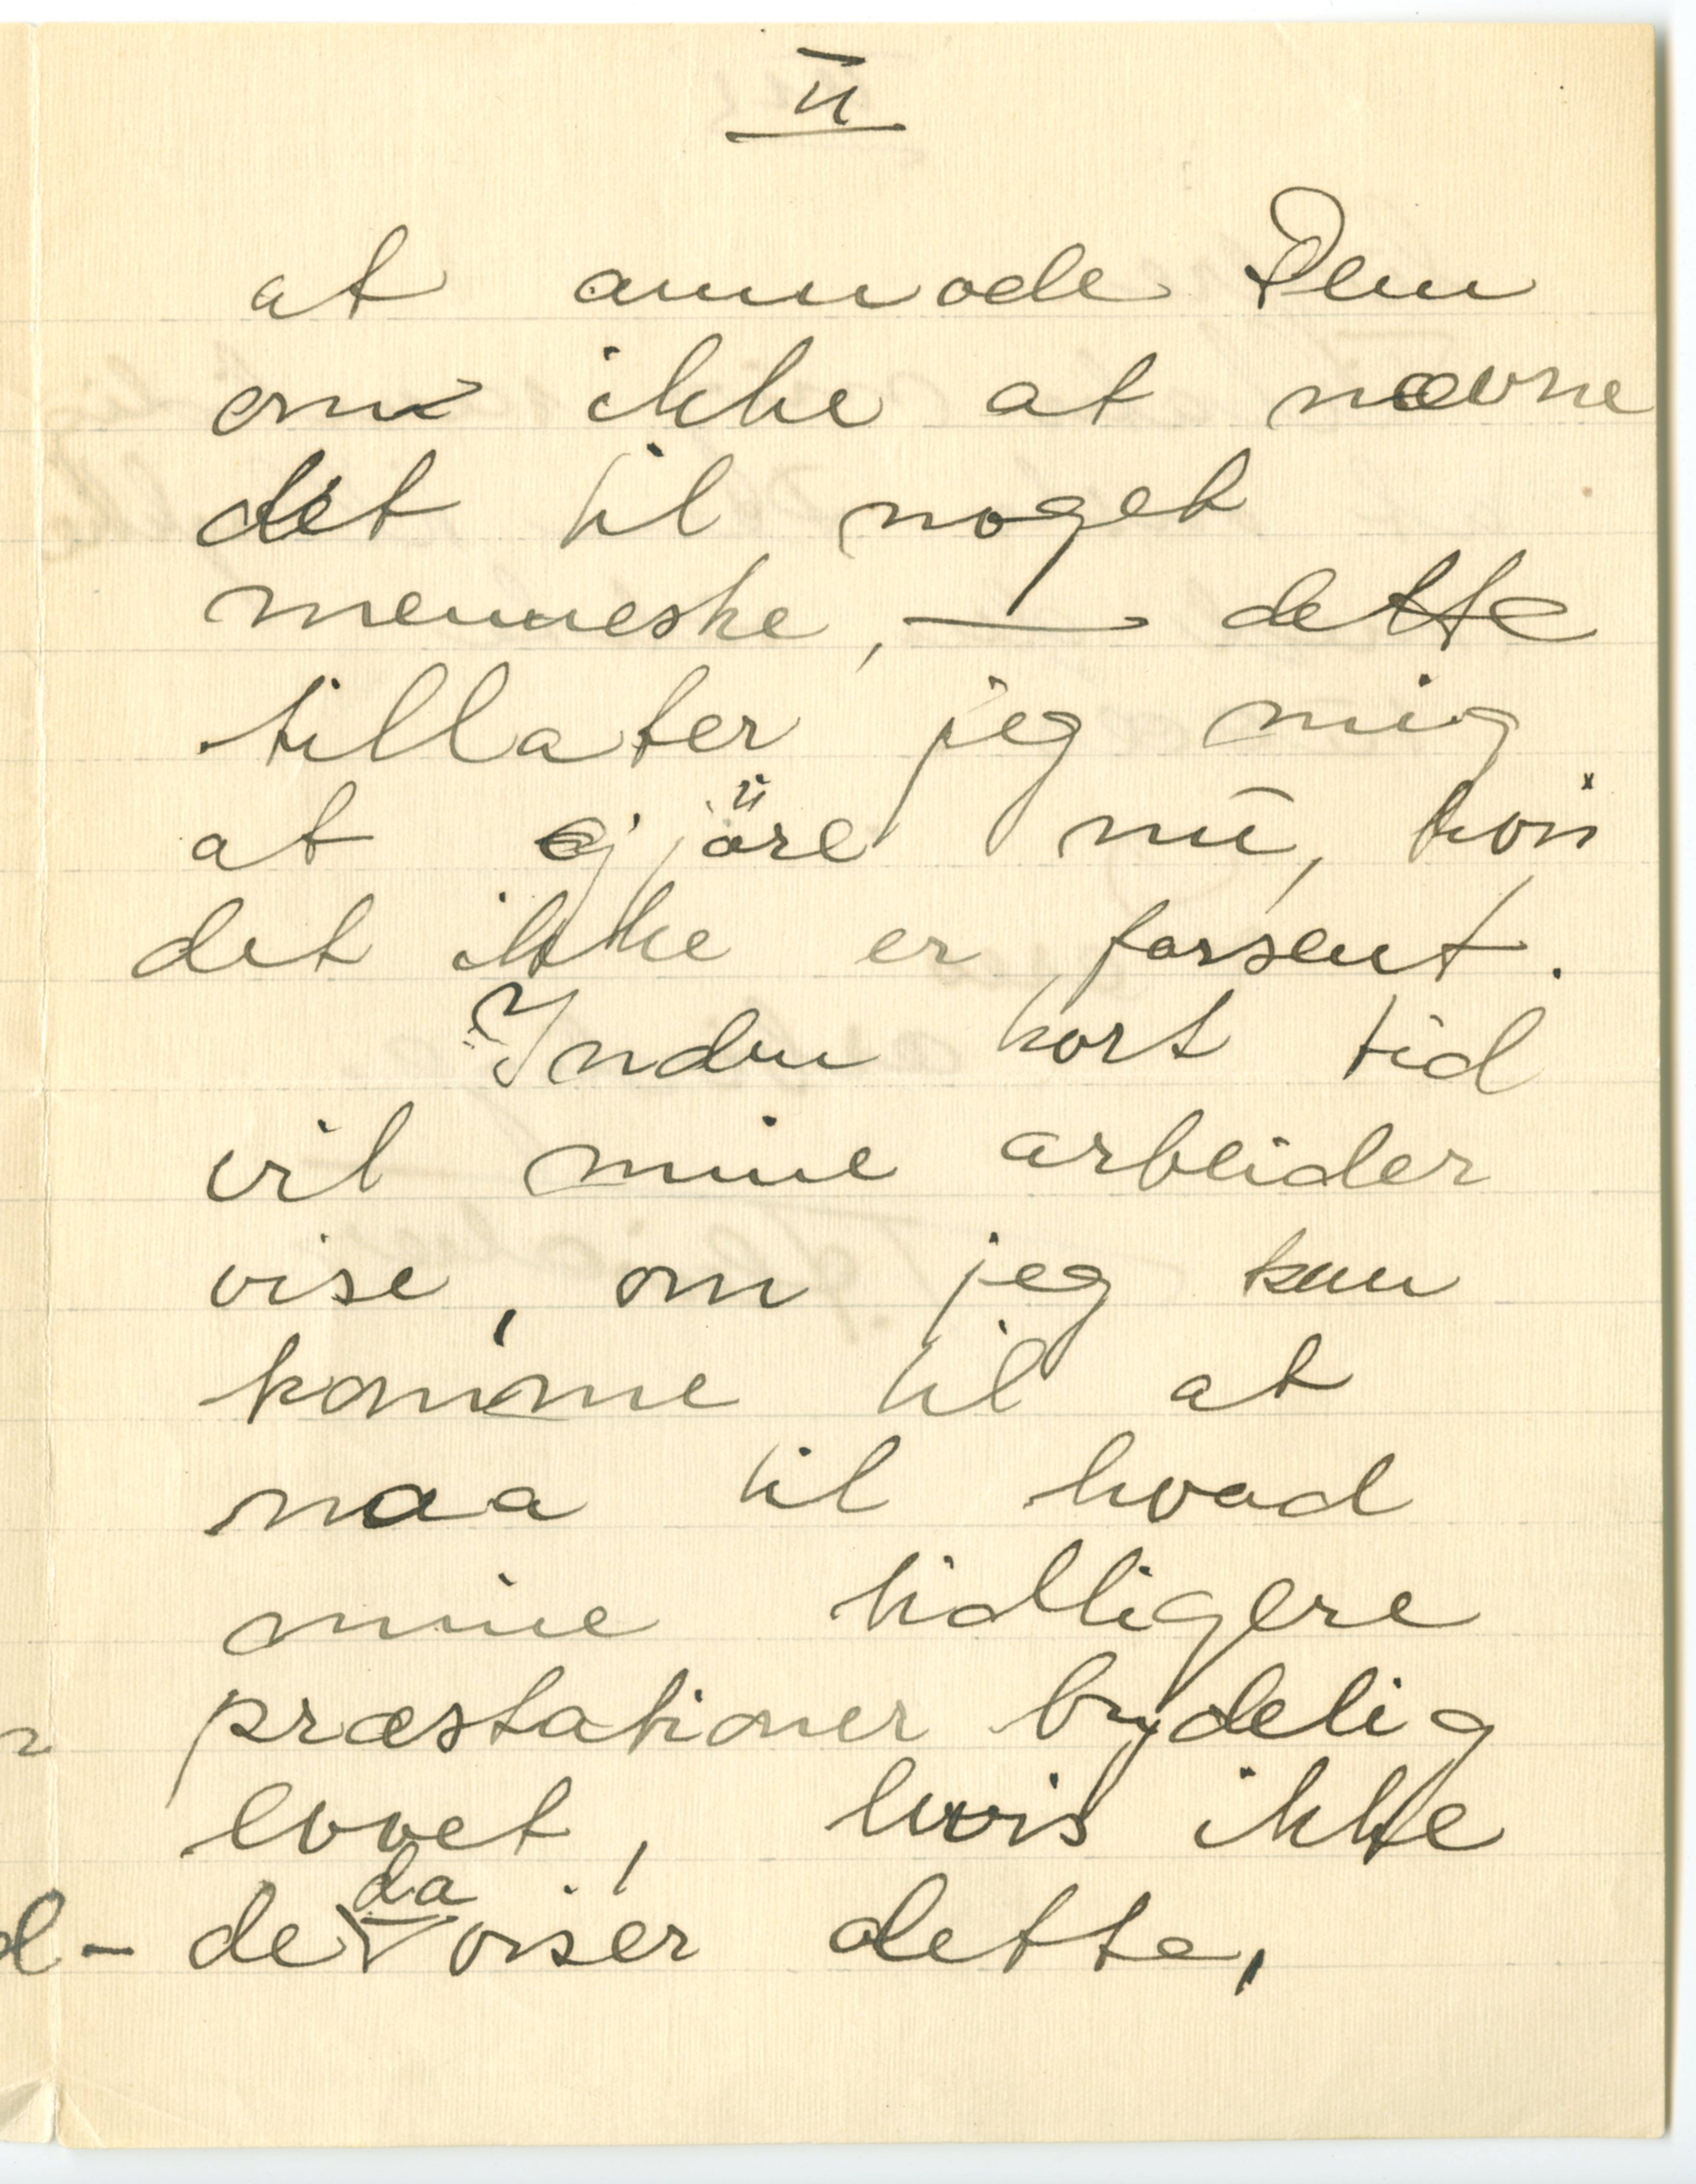 II
at anmode Dem
om ikke at nævne
det til noget
menneske, — dette
tillater jeg mig
at gjöre nu, hvis
det ikke er forsent.
Inden kort tid
vil mine arbeider
vise, om jeg kan
komme til at
naa til hvad
mine tidligere
præstationer tydelig
lovet, hvis ikke
de da viser dette,